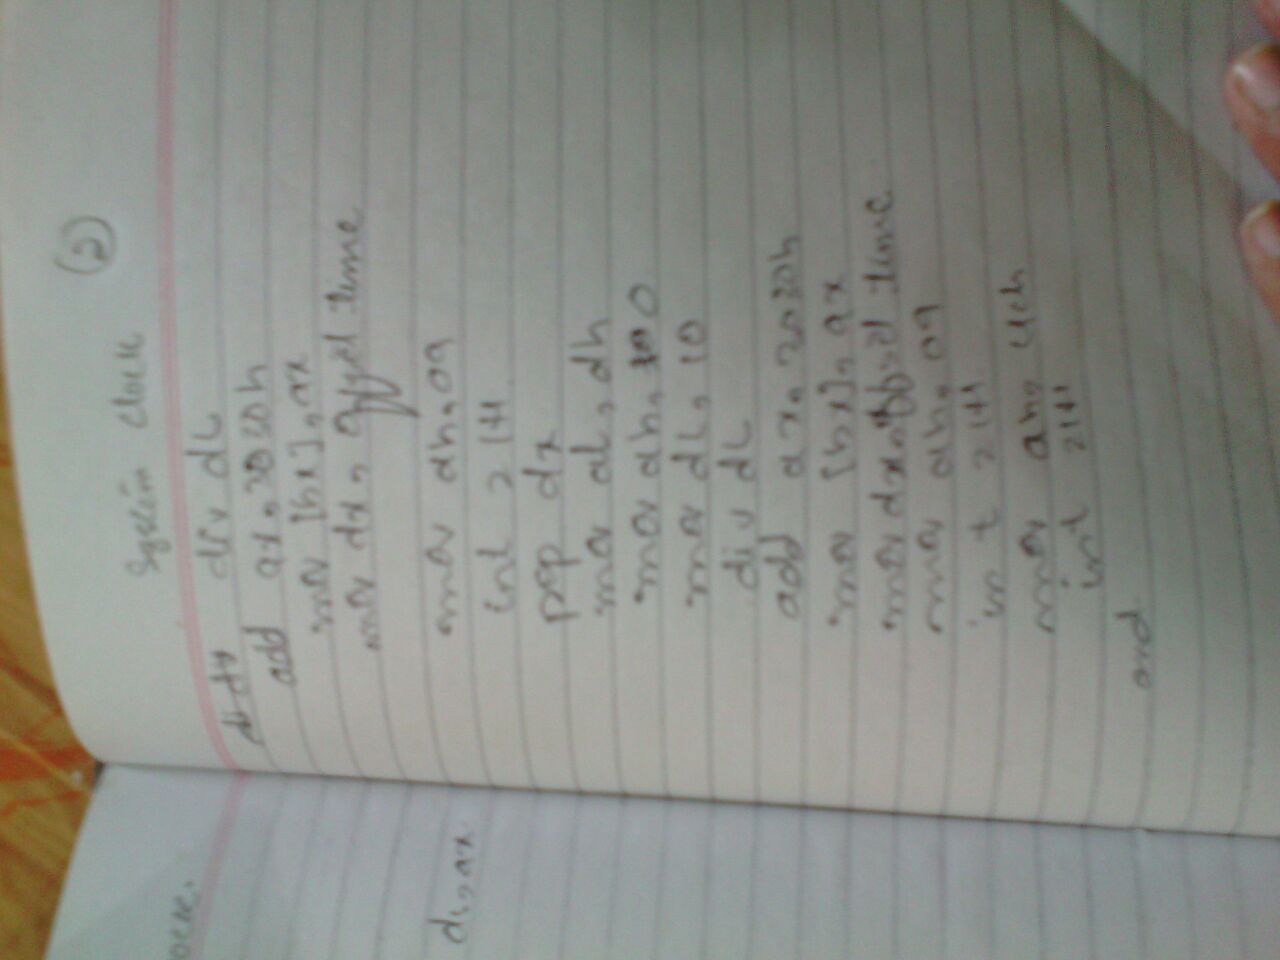 (2)
System clock
div dL
add ax, 3030h
mov [bx], ax
mov dx, offset time
mov ah, 09
int 21H
pop dx
mov al, dh
mov ah, 0
mov dL, 10
div dL
add ax, 3030h
mov [bx], ax
mov dx, offset time
mov ah, 09
int 21H
mov ah, 4ch
int 21H
end
di, ax